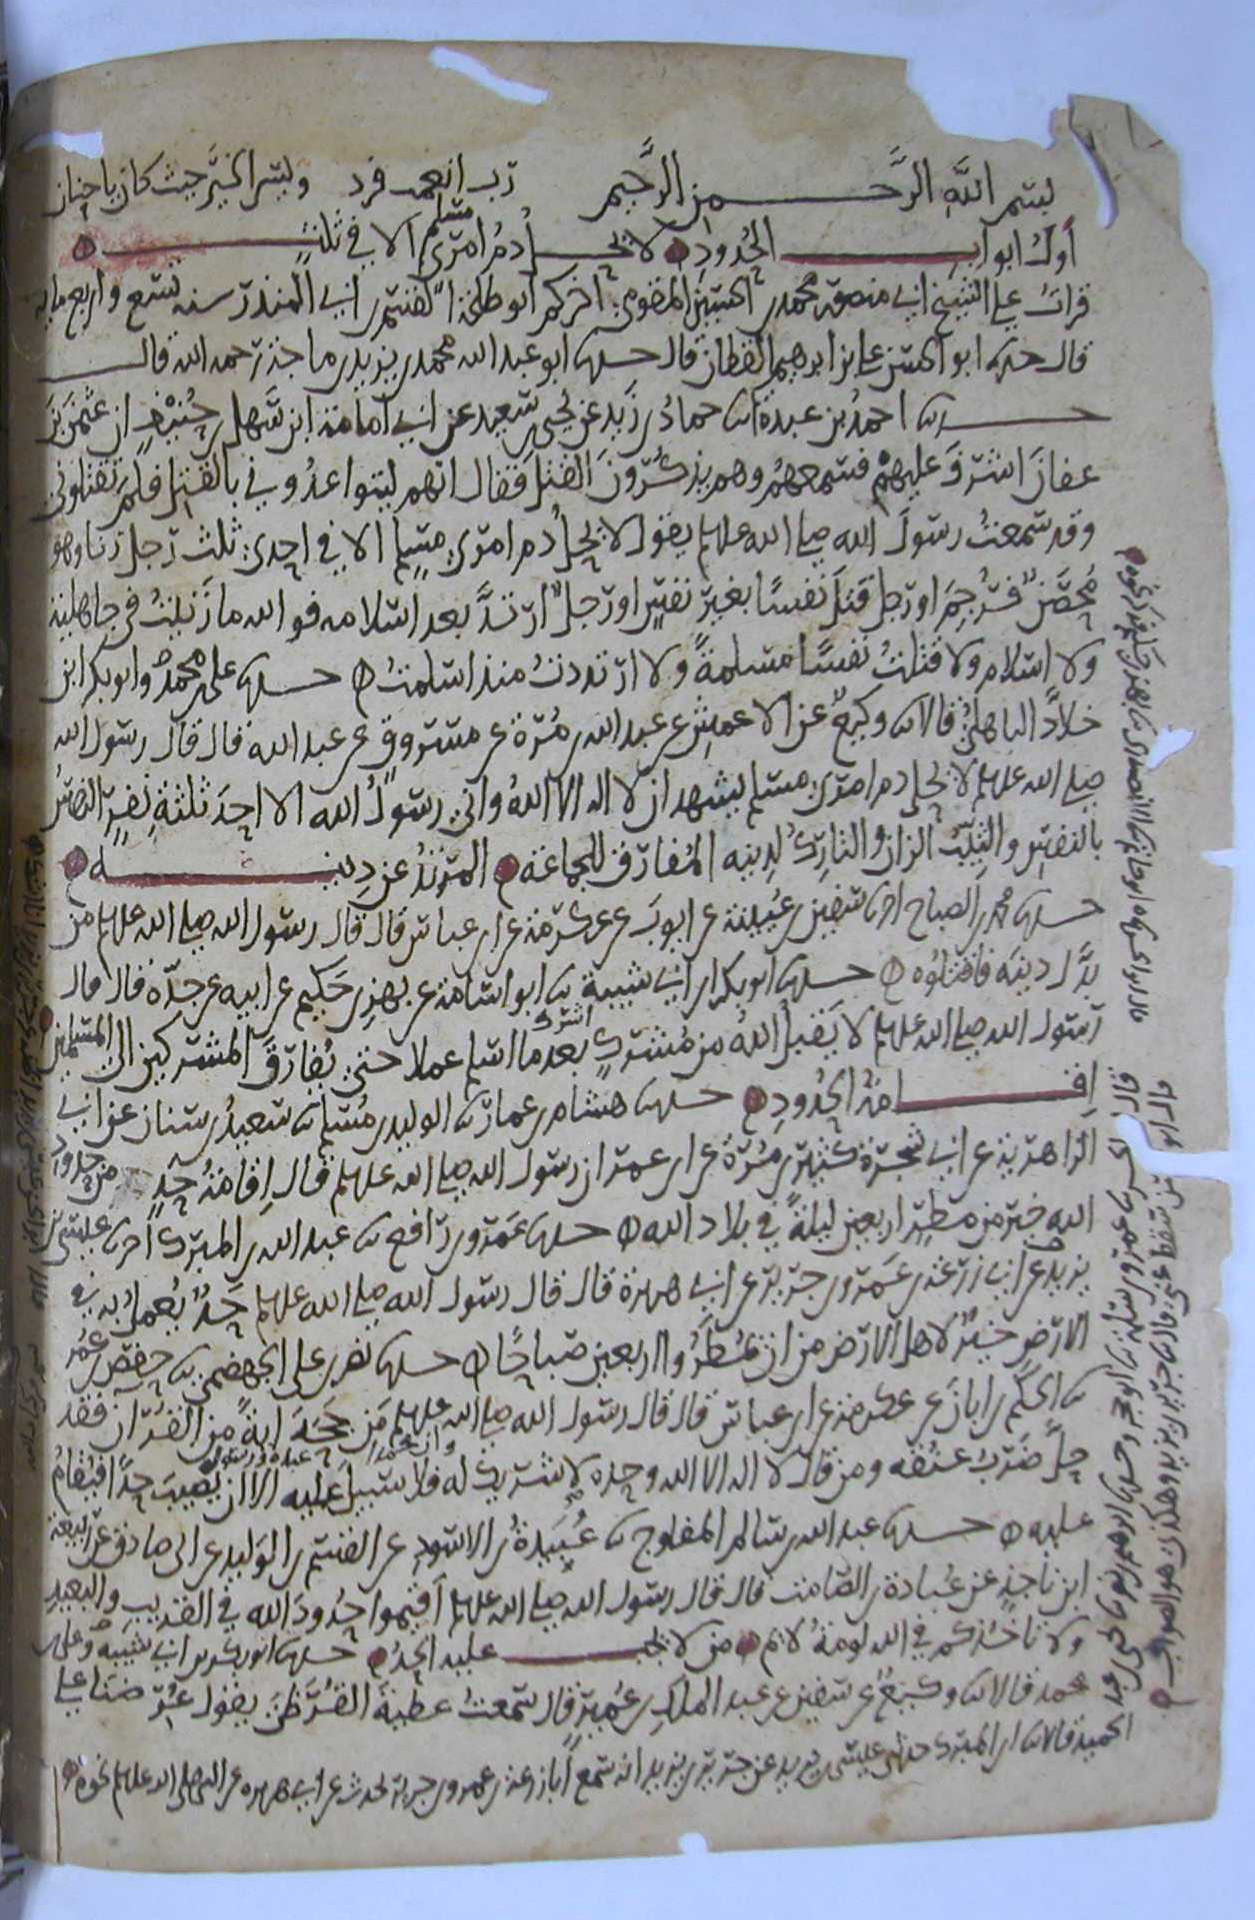 بسم الله الرحمن الرحيم رب انعمت فزد ويسر الخير حيث كان يا حنان
أول أبواب الحدود لا يحل دم امرئ مسلم الا في ثلث
قرات على الشيخ ابي منصور محمد بن الحسين المقومي اخبركم ابو طلحة القسم بن ابي المنذر سنه تسع واربع مايه
قال حدثنا ابو الحسن علي بن ابرهيم القطان قال حدثنا ابو عبد الله محمد بن يزيد بن ماجة رحمه الله قال
حدثنا احمد بن عبدة انا حماد بن زيد عن يحيى بن سعيد عن ابي امامة ابن سهل بن حنيف ان عثمن بن
عفان اشرف عليهم فسمعهم وهم يذكرون القتل فقال انهم ليتواعدوني بالقتل فلم تقتلوني
وقد سمعت رسول الله صلى الله علىه وسلم يقول لا يحل دم امرئ مسلم الا في احدى ثلث رجل زنا وهو
محصن فرجم او رجل قتل نفسا بغير نفس او رجل ارتد بعد اسلامه فوالله ما زنيت في جاهلية
ولا اسلام ولا قتلت نفسا مسلمة ولا ارتددت منذ اسلمت حدثنا علي بن محمد وابو بكر ابن
خلاد الباهلي قالا نا وكيع عن الاعمش عن عبد الله بن مرة عن مسروق عن عبد الله قال قال رسول الله
صلى الله عليه وسلم لا يحل دم امرئ مسلم يشهد ان لا اله الا الله واني رسول الله الا احد ثلثة نفر النفس
بالنفس والثيب الزان والتارك لدينه المفارق للجماعة المرتد عن دينه
حدثنا محمد بن الصباح انا سفين بن عيينة عن ايوب عن عكرمة عن ابن عباس قال قال رسول الله صلى الله عليه وسلم من
بدل دينه فاقتلوه حدثنا ابو بكر بن ابي شيبة نا ابو اسامة عن بهز بن حكيم عن ابيه عن جده قال قال
رسول الله صلى الله عليه وسلم لا يقبل الله من مشرك اشرك بعد ما اسلم عملا حتى يفارق المشركين الى المسلمين
اقامة الحدود حدثنا هشام بن عمار نا الوليد بن مسلم نا سعيد بن سنان عن ابي
الزاهرية عن ابي شجرة كثير بن مرة عن ابن عمر ان رسول الله صلى الله عليه وسلم قال اقامة حد من حدود
الله خير من مطر اربعين ليلة في بلاد الله حدثنا عمرو بن رافع نا عبد الله بن المبرك انا عيسى بن
يزيد عن ابي زرعة بن عمرو بن جرير عن ابي هريرة قال قال رسول الله صلى الله عليه وسلم حد يعمل به في
الارض خير لاهل الارض من ان يمطروا اربعين صباحا حدثنا نصر بن علي الجهضمي نا حفص بن عمر
نا الحكم بن ابان عن عكرمة عن ابن عباس قال قال رسول الله صلى الله عليه وسلم من جحد اية من القران فقد
حل ضرب عنقه ومن قال لا اله الا الله وحده لا شريك له وان محمدا عبده ورسوله فلا سبيل عليه الا ان يصيب حدا فيقام
عليه حدثنا عبد الله بن سالم المفلوج نا عبيدة بن الاسود عن القسم بن الوليد عن ابي صادق عن ربيعة
ابن ناجد عن عبادة بن الصامت قال قال رسول الله صلى الله عليه وسلم اقيموا حدود الله في القريب والبعيد
ولا تاخذكم في الله لومة لائم من لا يجب عليه الحد حدثنا ابو بكر بن ابي شيبة وعلي بن
محمد قالا نا وكيع عن سفين عن عبد الملك بن عمير قال سمعت عطية القرظي يقول عرضنا على
الحميد قالا نا ابن المبرك حدثني عيسى بن يزيد عن جرير بن يزيد انه سمع ابا زرعة بن عمرو بن جرير يحدث عن ابي هريرة عن النبي صلى الله عليه وسلم نحوه